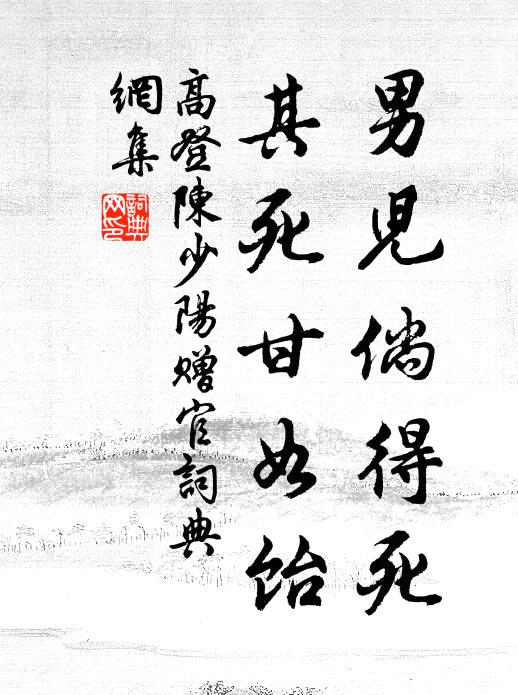 男児倘得死
其死甘如飴
高登陳少陽贈官詞典
網集
詞典
网印